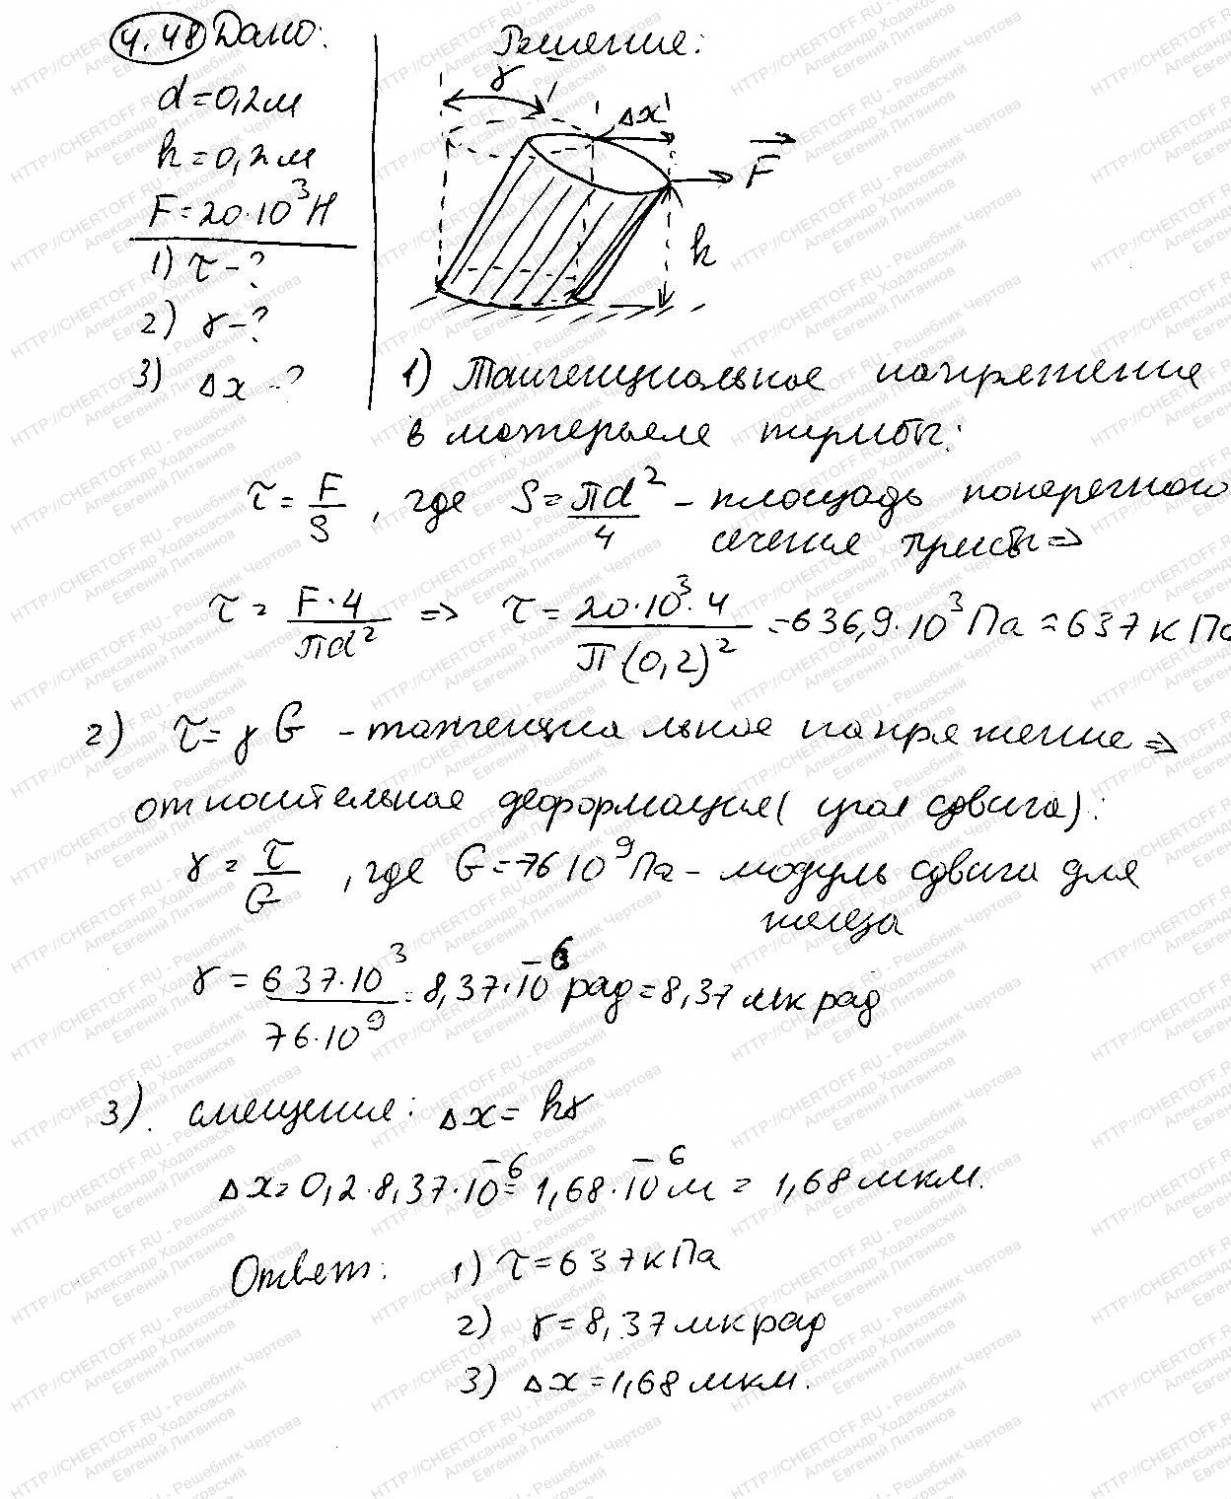 4.48 Дано:
d=0,2м
h=0,2м
F=20·10³Н
1) τ-?
2) γ-?
3) Δx-?
Решение:
γ
Δx
F
h
1) Тангенциальное напряжение
в материале тумбы:
τ=F/S, где S=πd²/4 - площадь поперечного
сечения тумбы ⇒
τ=F·4/πd² ⇒ τ=20·10³·4/π(0,2)²=636,9·10³Па=637кПа
2) τ=γG - тангенциальное напряжение ⇒
относительная деформация (угол сдвига):
γ=τ/G, где G=76 10⁹Па - модуль сдвига для
железа
γ=637·10³/76·10⁹=8,37·10⁻⁶рад=8,37мкрад
3). смещение: Δx=hγ
Δx=0,2·8,37·10⁻⁶=1,68·10⁻⁶м=1,68мкм.
Ответ: 1) τ=637кПа
2) γ=8,37мкрад
3) Δx=1,68мкм.
HTTP://CHERTOFF.RU - Решебник Чертова
Александр Ходаковский
Евгений Литвинов